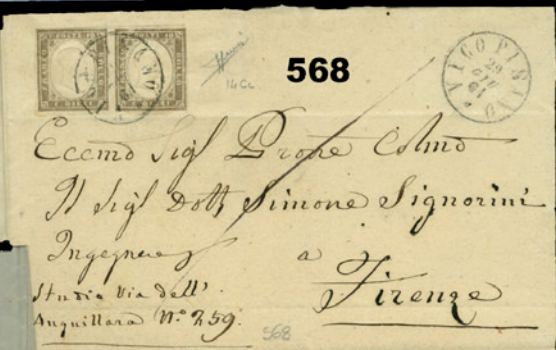 568
14Cc
VICOPISANO
29
GIU
61
Eccmo Sigl Prone Colmo
Il Sigl Dott Simone Signorini
Ingegnere
a
Firenze
Studio Via dell'
Anguillara No. 259.
568